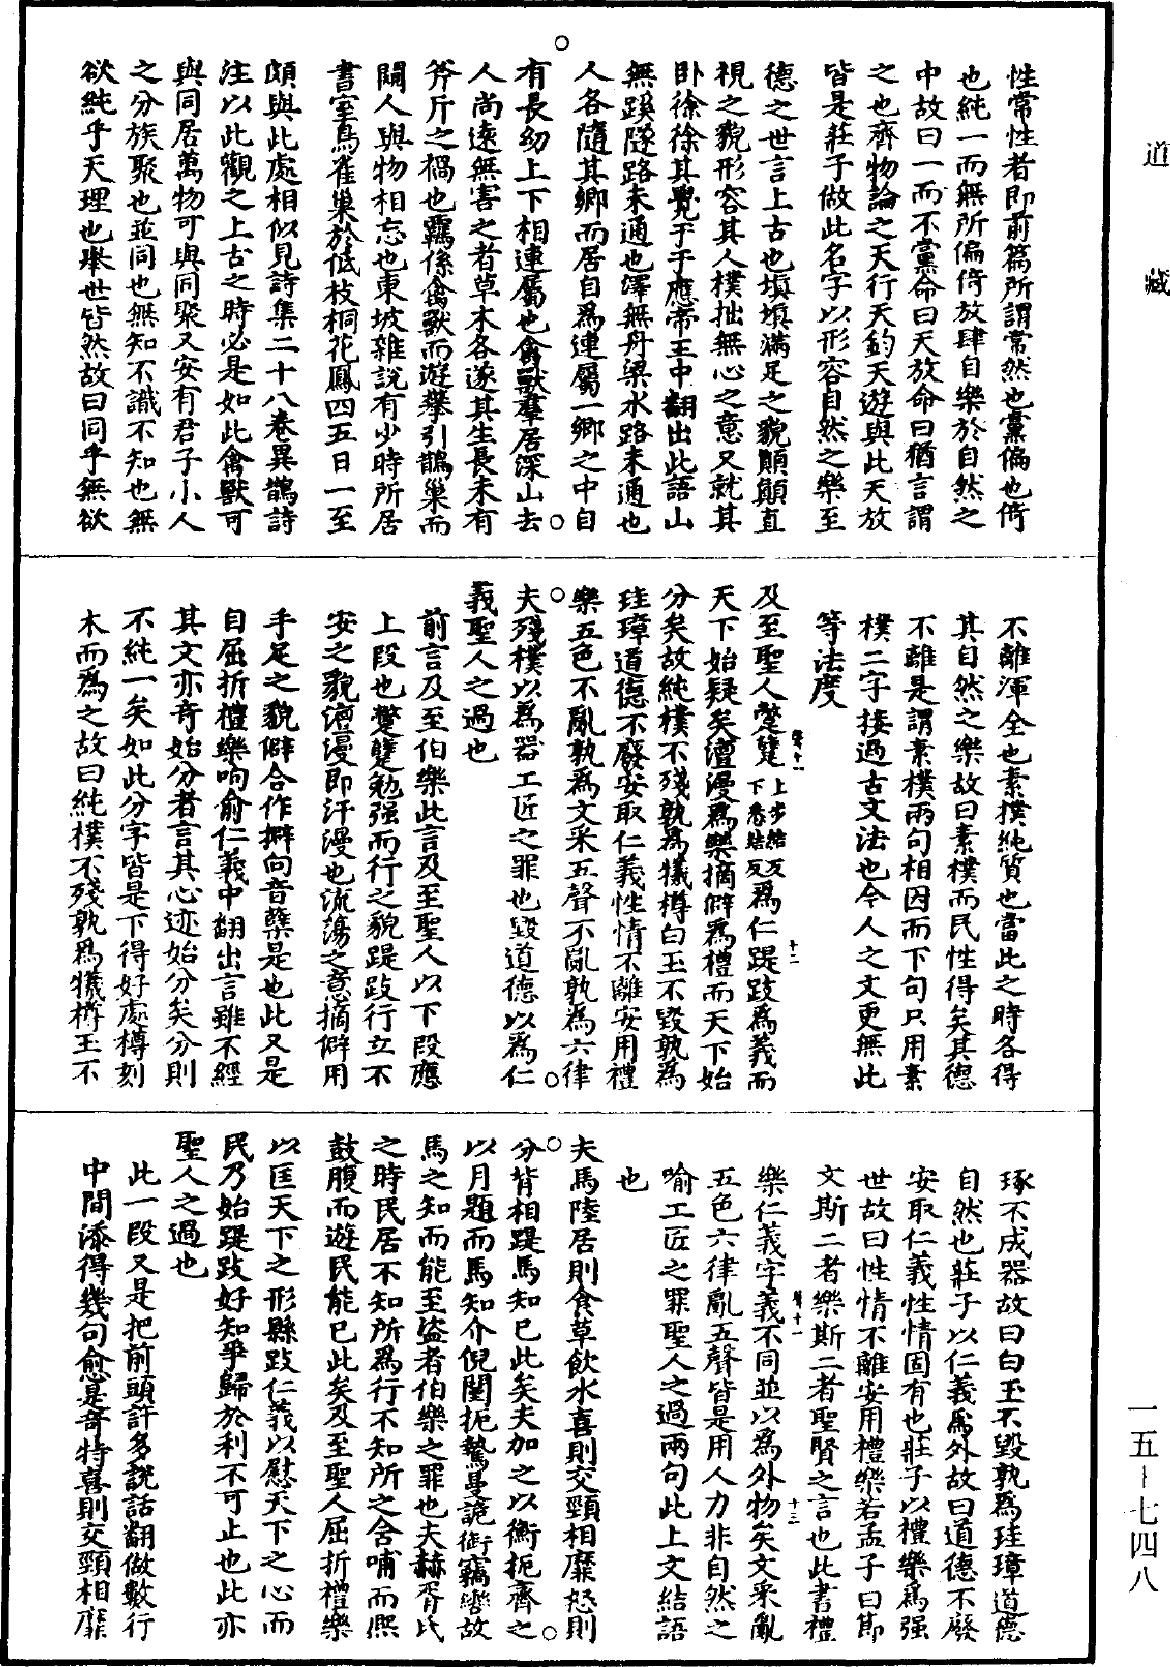 道藏
性常性者即前篇所謂常然也黨偏也倚
也純一而無所偏倚放肆自樂於自然之
中故曰一而不黨命曰天放命曰猶言謂
之也齊物論之天行天鈞天遊與此天放
皆是莊子做此名字以形容自然之樂至
德之世言上古也填填滿足之貌顛顛直
視之貌形容其人樸拙無心之意又就其
臥徐徐其覺于于應帝王中翻出此語山
無蹊隧路未通也澤無舟梁水路未通也
人各隨其鄉而居自爲連屬一鄉之中自
有長幼上下相連屬也禽獸羣居深山去
人尚遠無害之者草木各遂其生長未有
斧斤之禍也羈係禽獸而遊攀引鵲巢而
闚人與物相忘也東坡雜說有少時所居
書室鳥雀巢於低枝桐花鳳四五日一至
頗與此處相似見詩集二十八卷異鵲詩
注以此觀之上古之時必是如此禽獸可
與同居萬物可與同聚又安有君子小人
之分族聚也並同也無知不識不知也無
欲純乎天理也舉世皆然故曰同乎無欲
不離渾全也素樸純質也當此之時各得
其自然之樂故曰素樸而民性得矣其德
不離是謂素樸兩句相因而下句只用素
樸二字接過古文法也今人之文更無此
等法度
及至聖人蹩躠上步結反下悉結反爲仁踶跂爲義而
天下始疑矣澶漫爲樂摘僻爲禮而天下始
分矣故純樸不殘孰爲犧樽白玉不毀孰爲
珪璋道德不廢安取仁義性情不離安用禮
樂五色不亂孰爲文采五聲不亂孰爲六律
夫殘樸以爲器工匠之罪也毀道德以爲仁
義聖人之過也
前言及至伯樂此言及至聖人以下段應
上段也蹩躠勉强而行之貌踶跂行立不
安之貌澶漫即汗漫也流蕩之意摘僻用
手足之貌僻合作擗向音蘖是也此又是
自屈折禮樂呴俞仁義中翻出言雖不經
其文亦奇始分者言其心迹始分矣分則
不純一矣如此分字皆是下得好處樽刻
木而爲之故曰純樸不殘孰爲犧樽玉不
琢不成器故曰白玉不毀孰爲珪璋道德
自然也莊子以仁義爲外故曰道德不廢
安取仁義性情固有也莊子以禮樂爲强
世故曰性情不離安用禮樂若孟子曰節
文斯二者樂斯二者聖賢之言也此書禮
樂仁義字義不同並以爲外物矣文采亂
五色六律亂五聲皆是用人力非自然之
喻工匠之罪聖人之過兩句此上文結語
也
夫馬陸居則食草飲水喜則交頸相靡怒則
分背相踶馬知已此矣夫加之以衡扼齊之
以月題而馬知介倪闉扼鷙曼詭銜竊轡故
馬之知而能至盜者伯樂之罪也夫赫胥氏
之時民居不知所爲行不知所之含哺而熙
鼓腹而遊民能已此矣及至聖人屈折禮樂
以匡天下之形縣跂仁義以慰天下之心而
民乃始踶跂好知爭歸於利不可止也此亦
聖人之過也
此一段又是把前頭許多說話翻做數行
中間添得幾句愈是奇特喜則交頸相靡
一五-七四八